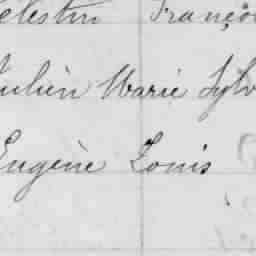 Celestin François
Julien Marie Sylv
Eugène Louis